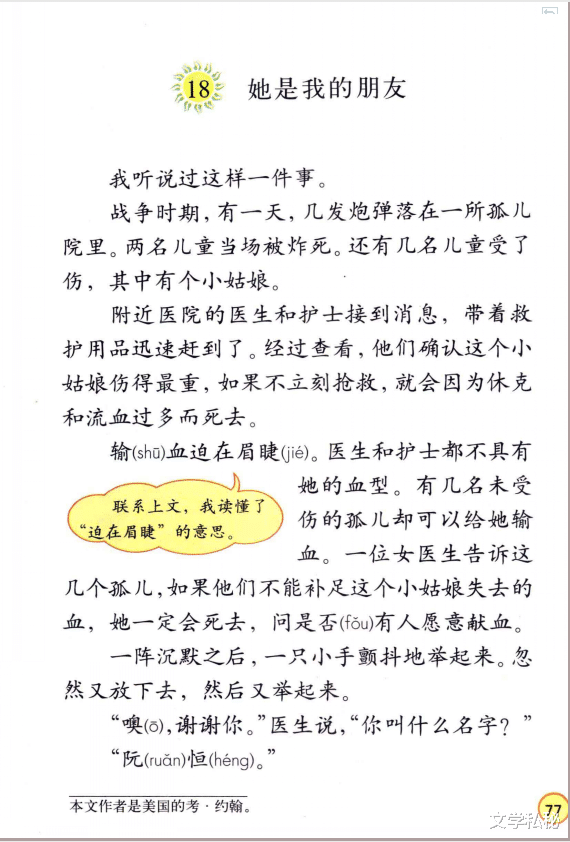 18 她是我的朋友
我听说过这样一件事。
战争时期，有一天，几发炮弹落在一所孤儿
院里。两名儿童当场被炸死。还有几名儿童受了
伤，其中有个小姑娘。
附近医院的医生和护士接到消息，带着救
护用品迅速赶到了。经过查看，他们确认这个小
姑娘伤得最重，如果不立刻抢救，就会因为休克
和流血过多而死去。
输(shū)血迫在眉睫(jié)。医生和护士都不具有
她的血型。有几名未受
伤的孤儿却可以给她输
血。一位女医生告诉这
联系上文，我读懂了
“迫在眉睫”的意思。
几个孤儿，如果他们不能补足这个小姑娘失去的
血，她一定会死去，问是否(fǒu)有人愿意献血。
一阵沉默之后，一只小手颤抖地举起来。忽
然又放下去，然后又举起来。
“噢(ō)，谢谢你。”医生说，“你叫什么名字？”
“阮(ruǎn)恒(héng)。”
本文作者是美国的考·约翰。
77
文学私秘